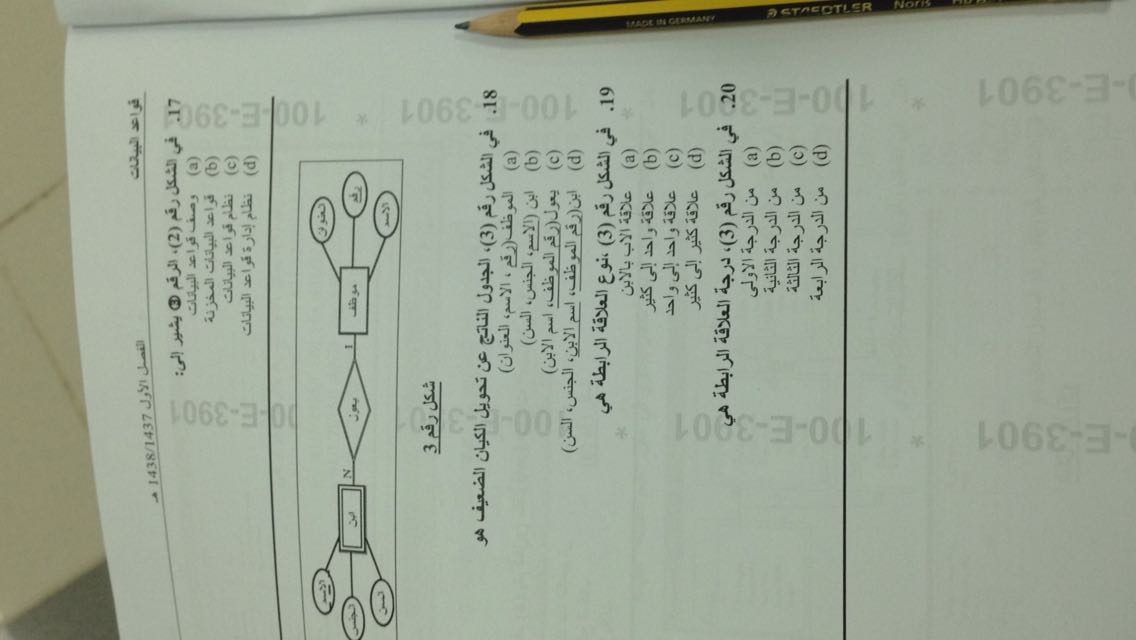 MADE IN GERMANY STAEDTLER Noris
قواعد البيانات
الفصل الأول 1438/1437 هـ
17. في الشكل رقم (2)، الرقم ③ يشير إلى:
(a) وصف قواعد البيانات
(b) قواعد البيانات المخزنة
(c) نظام قواعد البيانات
(d) نظام إدارة قواعد البيانات
العنوان
رقم
الاسم
موظف
1
يعول
N
ابن
الاسم
الجنس
السن
شكل رقم 3
18. في الشكل رقم (3)، الجدول الناتج عن تحويل الكيان الضعيف هو
(a) الموظف (رقم ، الاسم، العنوان)
(b) ابن (الاسم، الجنس، السن)
(c) يعول(رقم الموظف، اسم الابن)
(d) ابن(رقم الموظف، اسم الابن، الجنس، السن)
19. في الشكل رقم (3) ،نوع العلاقة الرابطة هي
(a) علاقة الاب بالابن
(b) علاقة واحد إلى كثير
(c) علاقة واحد إلى واحد
(d) علاقة كثير إلى كثير
20. في الشكل رقم (3)، درجة العلاقة الرابطة هي
(a) من الدرجة الاولى
(b) من الدرجة الثانية
(c) من الدرجة الثالثة
(d) من الدرجة الرابعة
100-E-3901 * 100-E-3901 * 100-E-3901 *
100-E-3901 * 100-E-3901 *